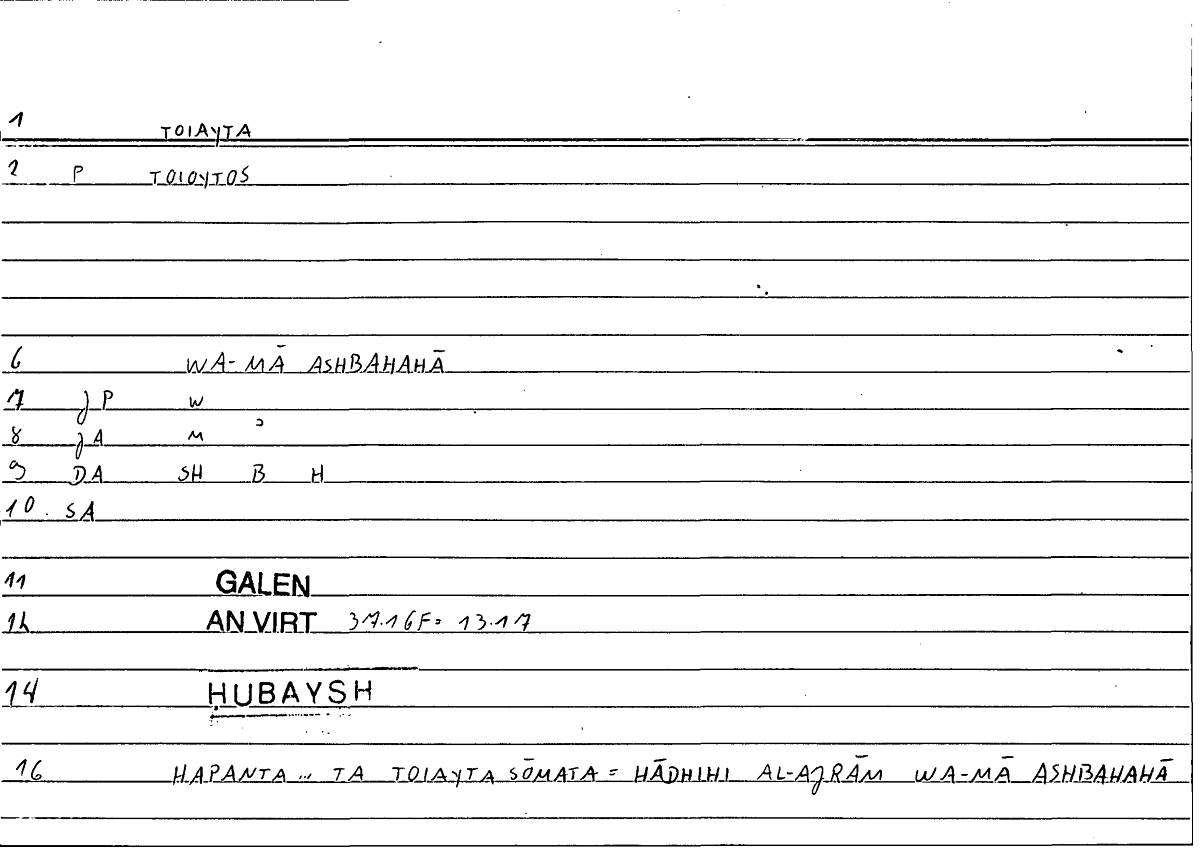 1 TOIAYTA
2 P TOIOYTOS
6 WA-MĀ ASHBAHAHĀ
7 JP W
8 JA M ʾ
9 DA SH B H
10. SA
11 GALEN
12 AN VIRT 37.16F= 13.17
14 ḤUBAYSH
16 HAPANTA ... TA TOIAYTA SŌMATA = HĀDHIHI AL-AJRĀM WA-MĀ ASHBAHAHĀ